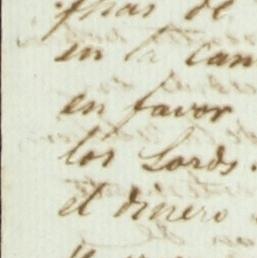 de
en la can
en favor
los Lords.
el dinero